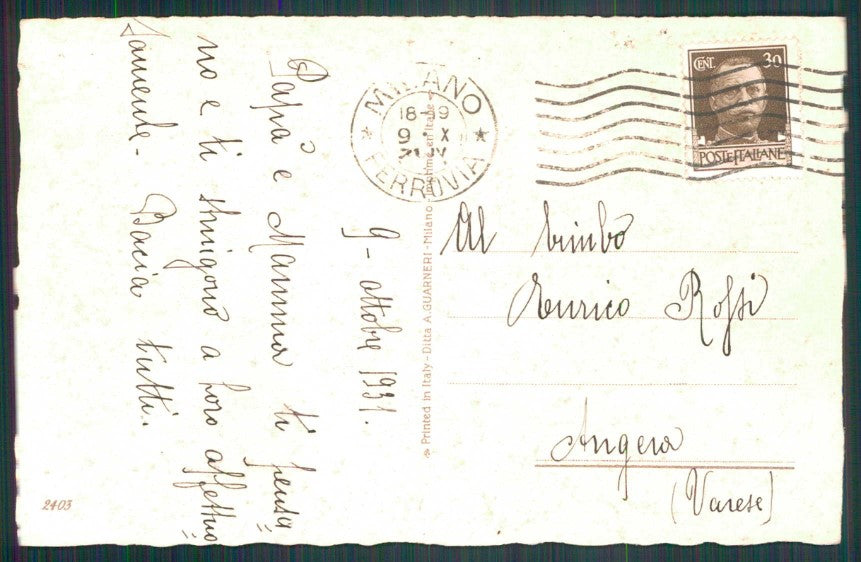 9 - ottobre 1931.
Papà e Mamma ti pensa
no e ti stringono a loro affettuo
samente. Bacia tutti.
MILANO
18-19
9 . X
FERROVIA
CENT. 30
POSTE ITALIANE
Al bimbo
Enrico Rossi
Angera
(Varese)
Printed in Italy - Ditta A. GUARNERI - Milano -
2403